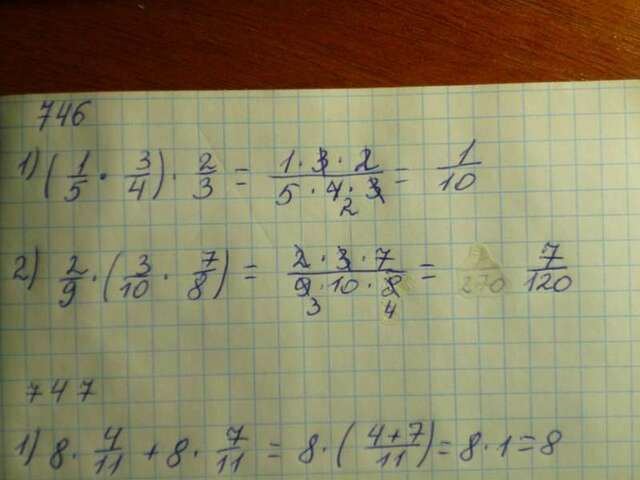 746
1) (1/5 · 3/4) · 2/3 = 1·3·2 / 5·4·3 = 1/10
2
2) 2/9 · (3/10 · 7/8) = 2·3·7 / 9·10·8 = 7/120
3 4
747
1) 8 · 4/11 + 8 · 7/11 = 8 · (4+7/11) = 8·1 = 8